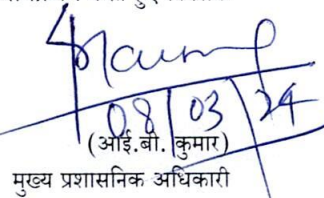 08/03/24
(आई.बी. कुमार)
मुख्य प्रशासनिक अधिकारी